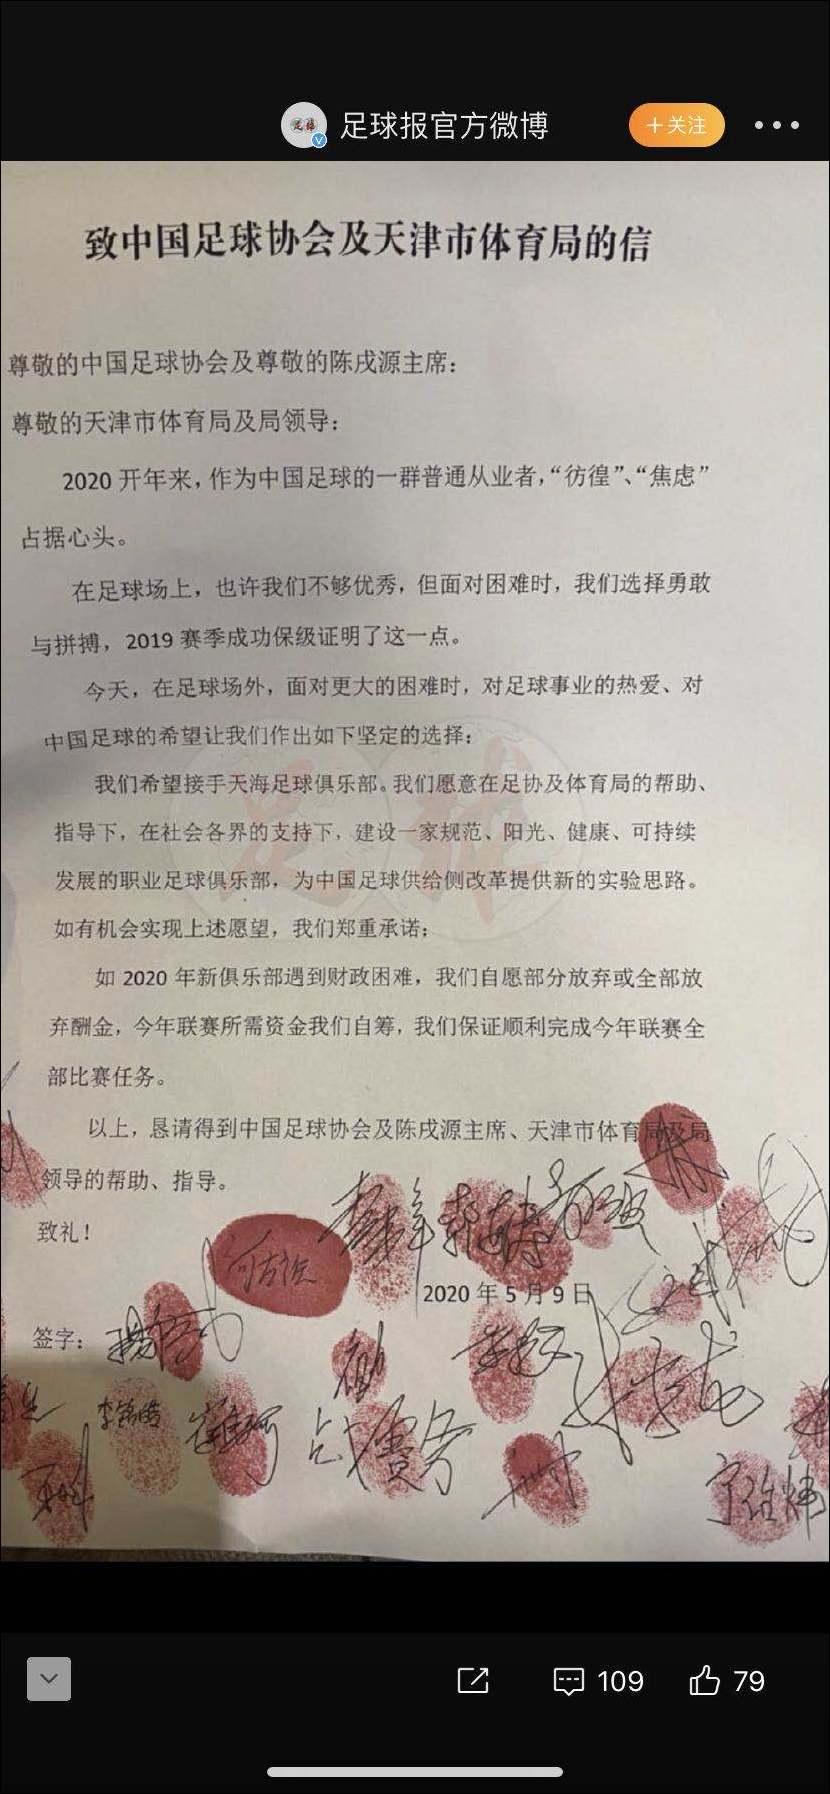 足球报官方微博
+关注
致中国足球协会及天津市体育局的信
尊敬的中国足球协会及尊敬的陈戌源主席：
尊敬的天津市体育局及局领导：
2020 开年来，作为中国足球的一群普通从业者，“彷徨”、“焦虑”
占据心头。
在足球场上，也许我们不够优秀，但面对困难时，我们选择勇敢
与拼搏，2019 赛季成功保级证明了这一点。
今天，在足球场外，面对更大的困难时，对足球事业的热爱、对
中国足球的希望让我们作出如下坚定的选择：
我们希望接手天海足球俱乐部。我们愿意在足协及体育局的帮助、
指导下，在社会各界的支持下，建设一家规范、阳光、健康、可持续
发展的职业足球俱乐部，为中国足球供给侧改革提供新的实验思路。
如有机会实现上述愿望，我们郑重承诺：
如 2020 年新俱乐部遇到财政困难，我们自愿部分放弃或全部放
弃酬金，今年联赛所需资金我们自筹，我们保证顺利完成今年联赛全
部比赛任务。
以上，恳请得到中国足球协会及陈戌源主席、天津市体育局及局
领导的帮助、指导。
致礼！
2020 年 5 月 9 日
签字：
李锦皓
宁维炜
109
79